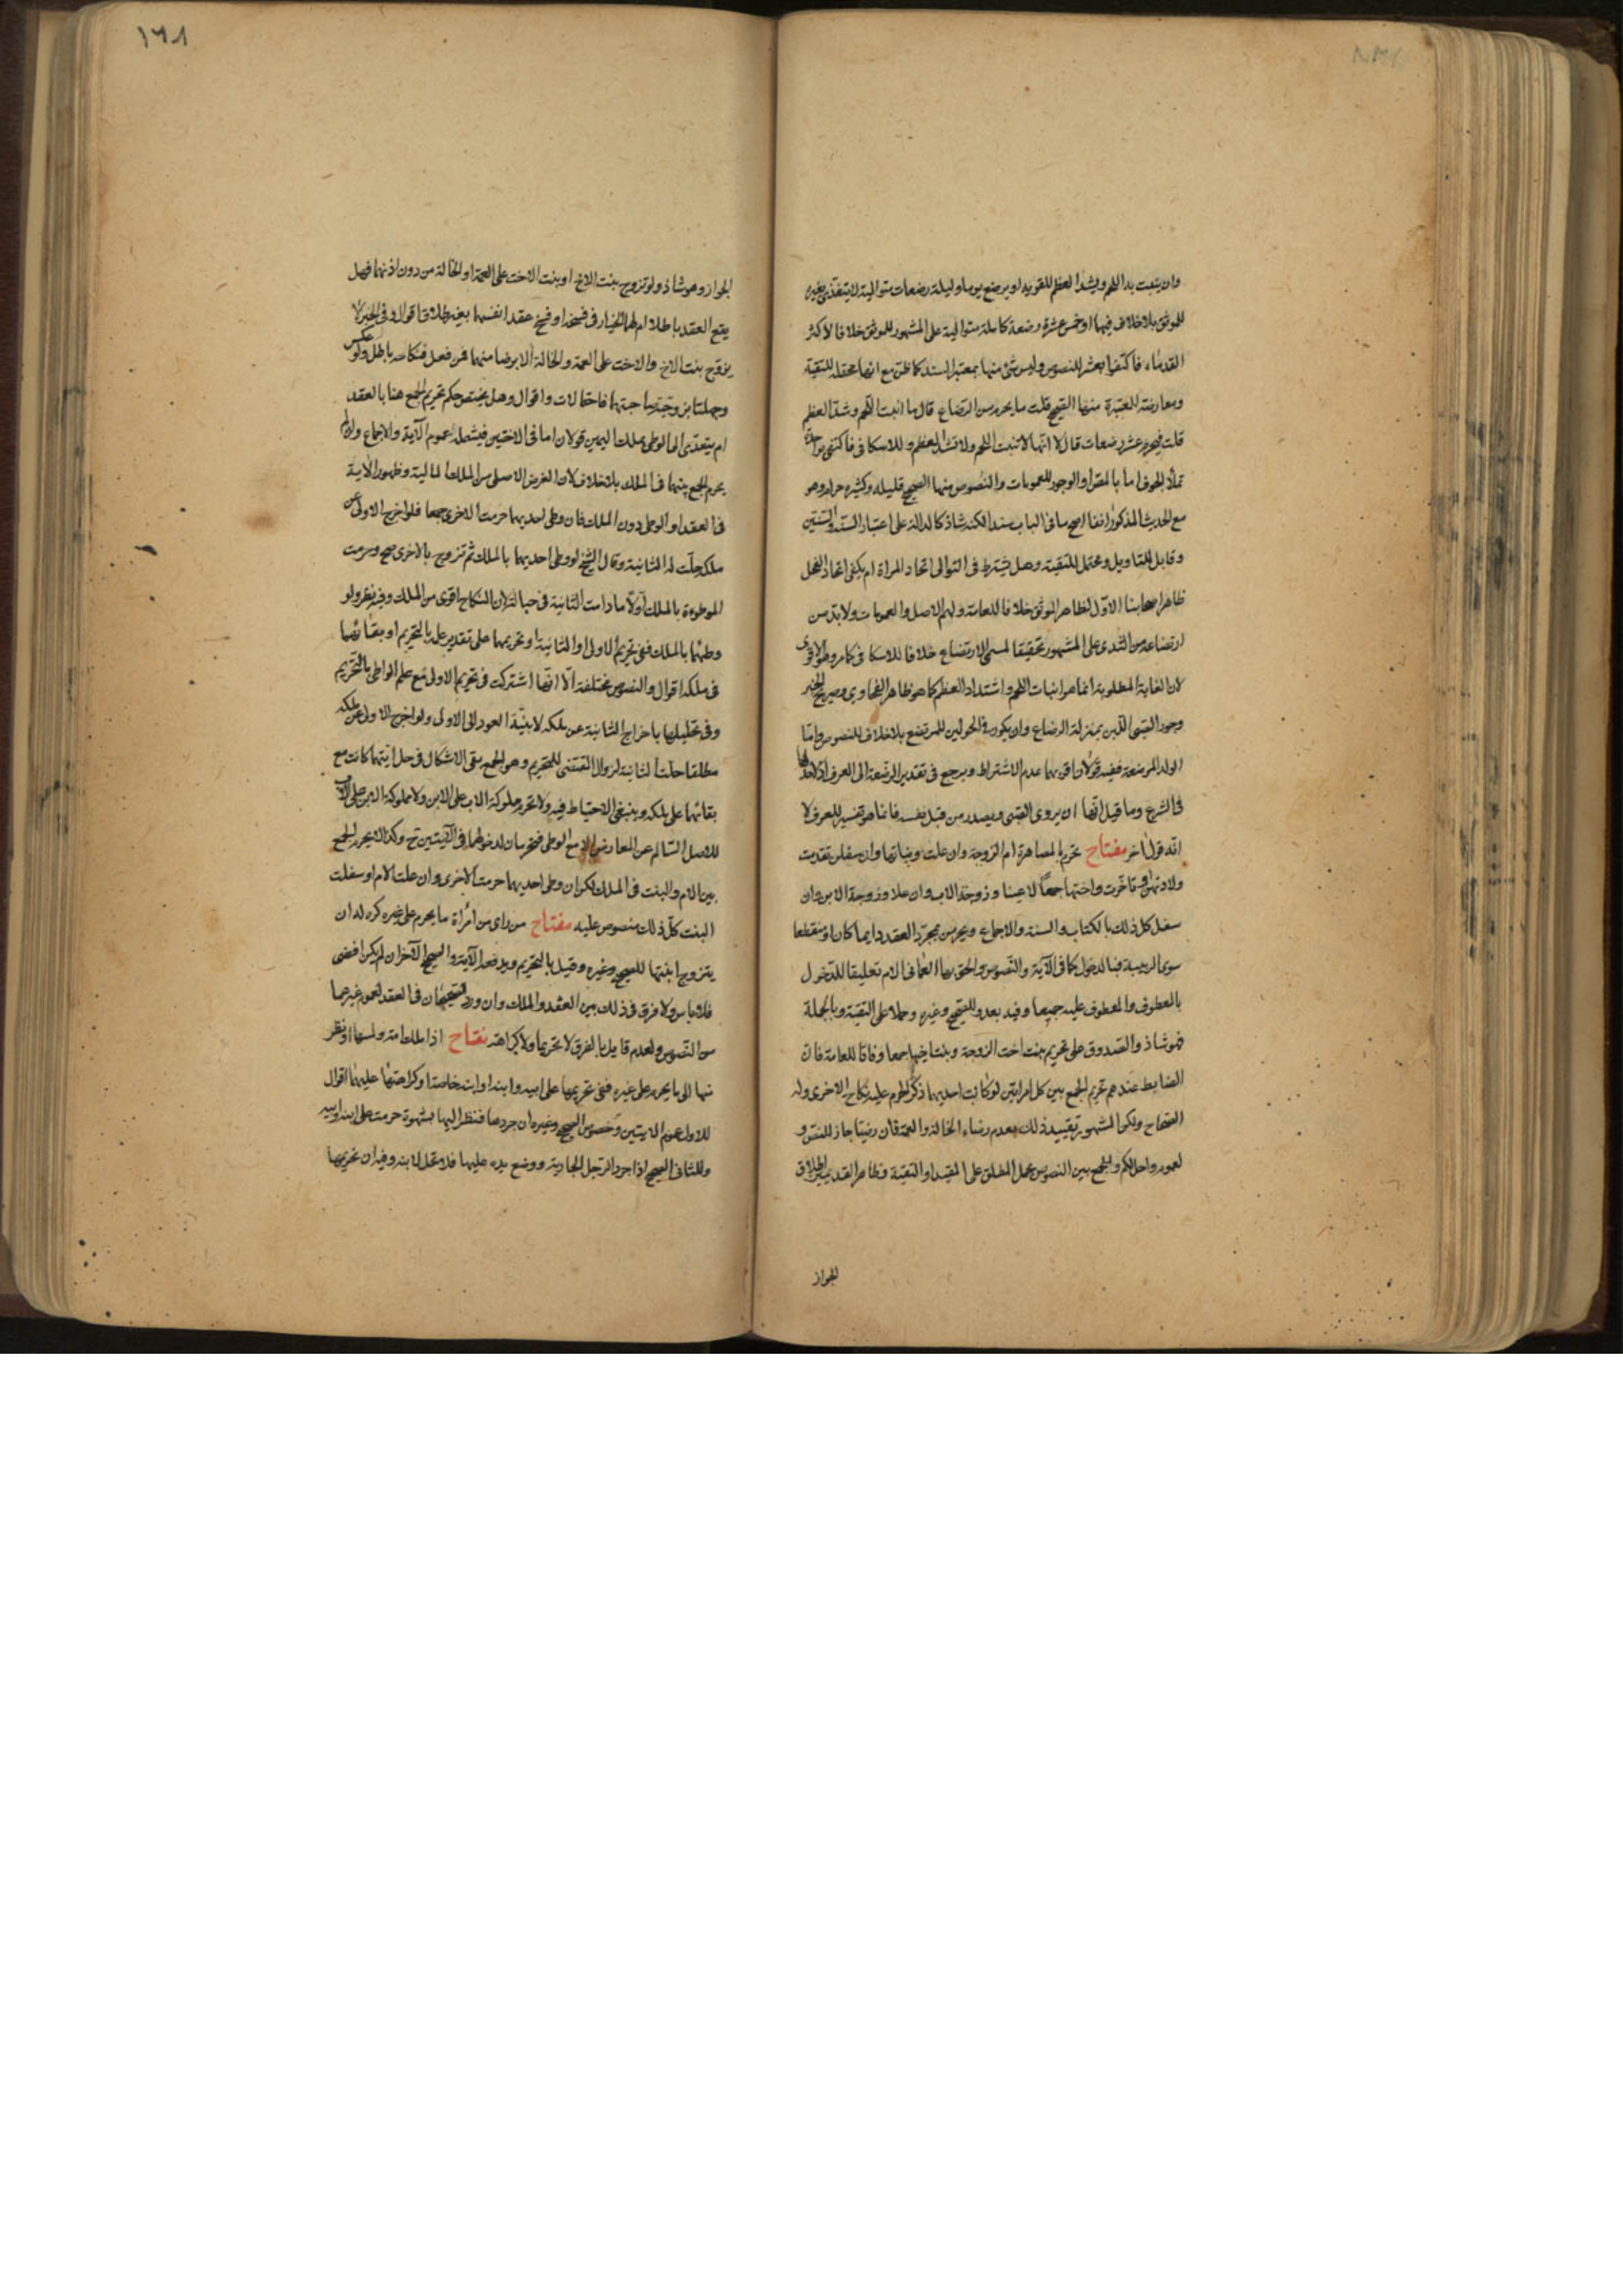 وان ينبت به اللحم ويشد العظم للقوية او يرضع يوما وليلة رضعات متوالية لا يتغذى بغيره
للموثق بلا خلاف فيهما او خمس عشرة رضعة كاملة متوالية على المشهور للموثق خلافا لاكثر
القدماء فاكتفوا بعشر للنصوص وليس شئ منها بمعتبر السند كما ظن مع انها محتملة للتقية
ومعارضة للمعتبرة منها الصحيح قلت ما يحرم من الرضاع قال ما انبت اللحم وشد العظم
قلت فيحرم عشر رضعات قال لا انها لا تنبت اللحم ولا تشد العظم وللاسكافي فاكتفى بواحدة
تملأ الجوف اما بالمص او الوجور للعمومات والنصوص منها الصحيح قليله وكثيره حرام وهو
مع الحديث المذكور انفا اصح ما في الباب سندا لكنه شاذ كالدالة على اعتبار السنة والسنتين
وقابل للتاويل ومحتمل للتقية وهل يشترط في التوالى اتحاد المراة ام يكفى اتحاد الفحل
ظاهر اصحابنا الاول لظاهر الموثق خلافا للعامة ولهم الاصل والعمومات ولا بد من
ارتضاعه من الثدى على المشهور تحقيقا لمسمى الارتضاع خلافا للاسكافى كما مر وهو الاقوى
لان الغاية المطلوبة انما هو انبات اللحم واشتداد العظم كما هو ظاهر الفحاوى وصريح الخبر
وجور الصبى اللبن بمنزلة الرضاع وان يكون فى الحولين للمرتضع بلا خلاف للنصوص واما
الولد المرضعة ففيه قولان اقربهما عدم الاشتراط ويرجع فى تقدير الرضعة الى العرف اذ لا حد لها
فى الشرع وما قيل انها ان يروى الصبى ويصدر من قبل نفسه فانما هو تفسير للعرف لا
انه قول اخر مفتاح يحرم بالمصاهرة ام الزوجة وان علت وبناتها وان سفلن تقدمت
ولادتهن او تاخرت واختها جمعا لا عينا وزوجة الاب وان علا وزوجة الابن وان
سفل كل ذلك بالكتاب والسنة والاجماع ويحرمن بمجرد العقد دايما كان او منقطعا
سوى الربيبة فبالدخول كما فى الآية والنصوص والحق بها العمانى الام تعليقا للدخول
بالمعطوف والمعطوف عليه جميعا وفيه بعد وللصحيح وغيره وحملا على التقية وبالجملة
فهو شاذ والصدوق على تحريم بنت اخت الزوجة وبنت اخيها جمعا وفاقا للعامة فان
الضابط عندهم تحريم الجمع بين كل امراتين لو كانت احديهما ذكرا لحرم عليه نكاح الاخرى وله
الصحاح ولكن المشهور تقييد ذلك بعدم رضاء الخالة والعمة فان رضيتا جاز للنص و
لعموم واحل لكم وللجمع بين النصوص بحمل المطلق على المقيد او التقية وظاهر القديمين اطلاق
الجواز
١٦٨
الجواز وهو شاذ ولو تزوج ببنت الاخ او بنت الاخت على العمة او الخالة من دون اذنهما فهل
يقع العقد باطلا ام لهما الخيار فى فسخه او فسخ عقد انفسهما بغير طلاق اقوال وفى الخبر لا
يزوج بنت الاخ والاخت على العمة والخالة الا برضا منهما فمن فعل فنكاحه باطل ولو عكس
وجهلتا بزوجية صاحبتهما فاحتمالات واقوال وهل يختص حكم تحريم الجمع هنا بالعقد
ام يتعدى الى الوطى بملك اليمين قولان اما فى الاختين فيشمله لعموم الآية والاجماع ولا
يحرم الجمع بينهما فى الملك بلا خلاف لان الغرض الاصلى من الملك المالية وظهور الآية
فى العقد او الوطى دون الملك فان وطى احديهما حرمت الاخرى جمعا فلو اخرج الاولى عن
ملكه حلت له الثانية وقال الشيخ لو وطى احديهما بالملك ثم تزوج بالاخرى صح وحرمت
الموطوءة بالملك اولا ما دامت الثانية فى حباله لان النكاح اقوى من الملك وفيه نظر ولو
وطئهما بالملك ففى تحريم الاولى او الثانية او تحريمهما على تقدير علمه بالتحريم او بقائهما
فى ملكه اقوال والنصوص مختلفة الا انها اشتركت فى تحريم الاولى مع علم الواطى بالتحريم
وفى تحليلها باخراج الثانية عن ملكه لا بنية العود الى الاولى ولو اخرج الاولى عن ملكه
مطلقا حلت الثانية لزوال المقتضى للتحريم وهو الجمع بقى الاشكال فى حل ايتهما كانت مع
بقائهما على ملكه وينبغى الاحتياط فيه ولا تحرم مملوكة الاب على الابن ولا مملوكة الابن على الاب
للاصل السالم عن المعارض الا مع الوطى فتحرمان لدخولهما فى الآيتين ح وكذلك يحرم الجمع
بين الام والبنت فى الملك لكن ان وطى احديهما حرمت الاخرى وان علت الام او سفلت
البنت كل ذلك منصوص عليه مفتاح من راى من امراة ما يحرم على غيره كره له ان
يتزوج ابنتها للصحيح وغيره وقيل بالتحريم ويدفعه الآية والصحيح الآخر ان لم يكن افضى
فلا باس ولا فرق فى ذلك بين العقد والملك وان ورد الصحيحان فى العقد لعموم غيرهما
من النصوص ولعدم قايل بالفرق لا تحريما ولا كراهة مفتاح اذا ملك امة ولمسها او نظر
منها الى ما يحرم على غيره ففى تحريمها على ابيه وابنه او ابنه خاصة او كراهتها عليهما اقوال
للاول عموم الآيتين وخصوص الصحيح وغيره ان جردها فنظر اليها بشهوة حرمت على ابنه وابيه
وللثانى الصحيح اذا جرد الرجل الجارية ووضع يده عليها فلا تحل لابنه وفيه ان تحريمها